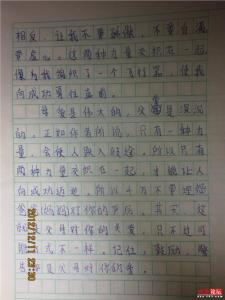 相反，让我不要骄傲，不要自满
带虚心。这两种力量交织在一起
像为我编织了一个飞行器，使我
向成功勇往直前。
母爱是伟大的，父爱是深沉
的。正如作者所说，只有一种力
量，会使人跌入歧途，所以只有
两种力量交织在一起，才能让人
向成功迈进。所以千万不要埋怨
爸爸妈妈对你的严厉。其实，这
就是父母对你的关爱，只不过
形式不一样。记住，鼓励、警
告都是父母对你的爱。
2012/12/11